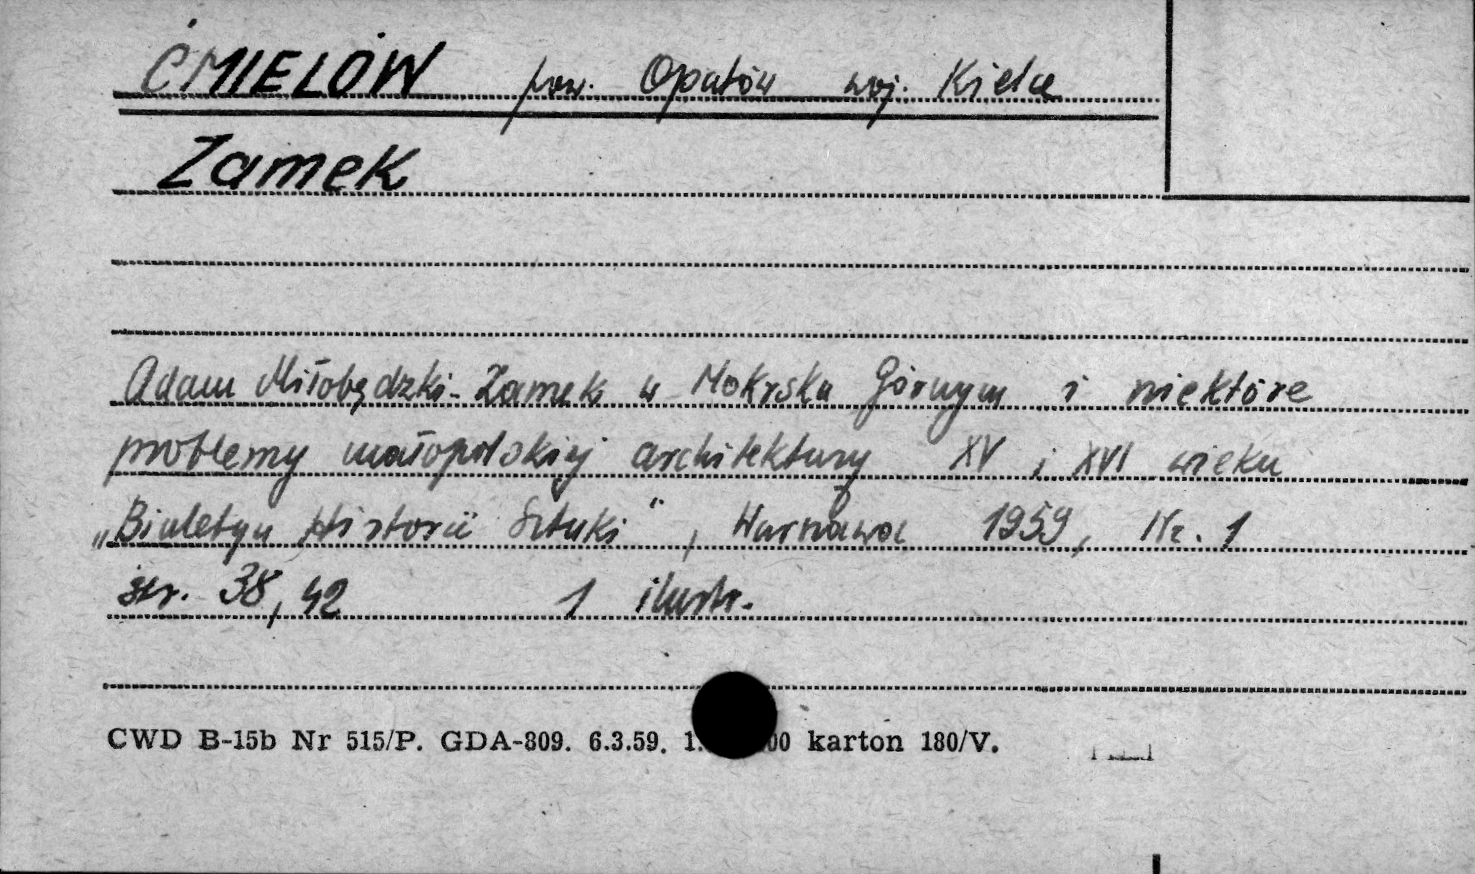 ĆMIELÓW pow. Opatów woj. Kielce
Zamek
Adam Miłobędzki - Zamek w Mokrsku Górnym i niektóre
problemy małopolskiej architektury XV i XVI wieku
„Biuletyn Historii Sztuki", Warszawa 1959, Nr. 1
str. 38, 42 1 ilustr.
CWD B-15b Nr 515/P. GDA-809. 6.3.59. 1. 00 karton 180/V.